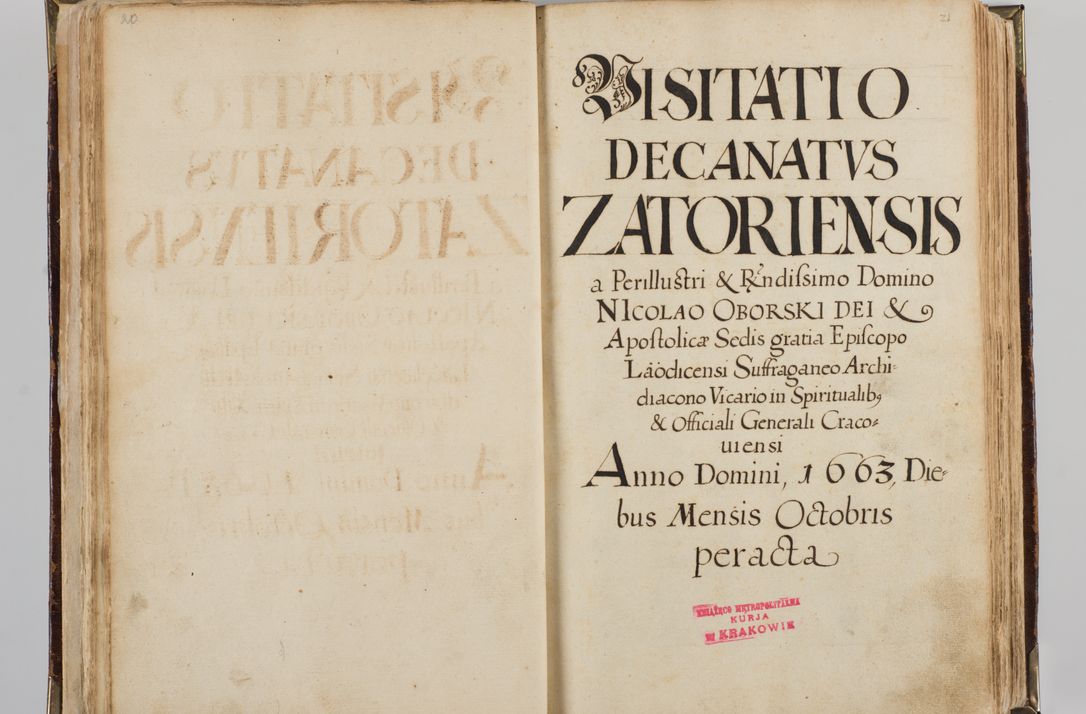 20
21
VISITATIO
DECANATVS
ZATORIENSIS
a Perillustri & Rndiſsimo Domino
NICOLAO OBORSKI DEI &
Apostolicæ Sedis gratia Epiſcopo
Läödicensi Suffraganeo Archi=
diacono Vicario in Spiritualibꝫ
& Officiali Generali Craco=
uiensi
Anno Domini, 1663, Die=
bus Mensis Octobris
peracta
KSIĄŻĘCO METROPOLITALNA
KURJA
W KRAKOWIE